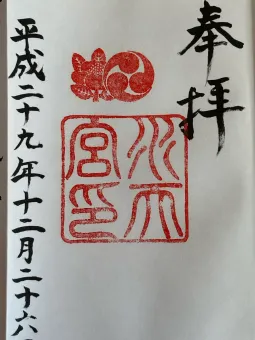 奉拝
水天宮印
平成二十九年十二月二十六